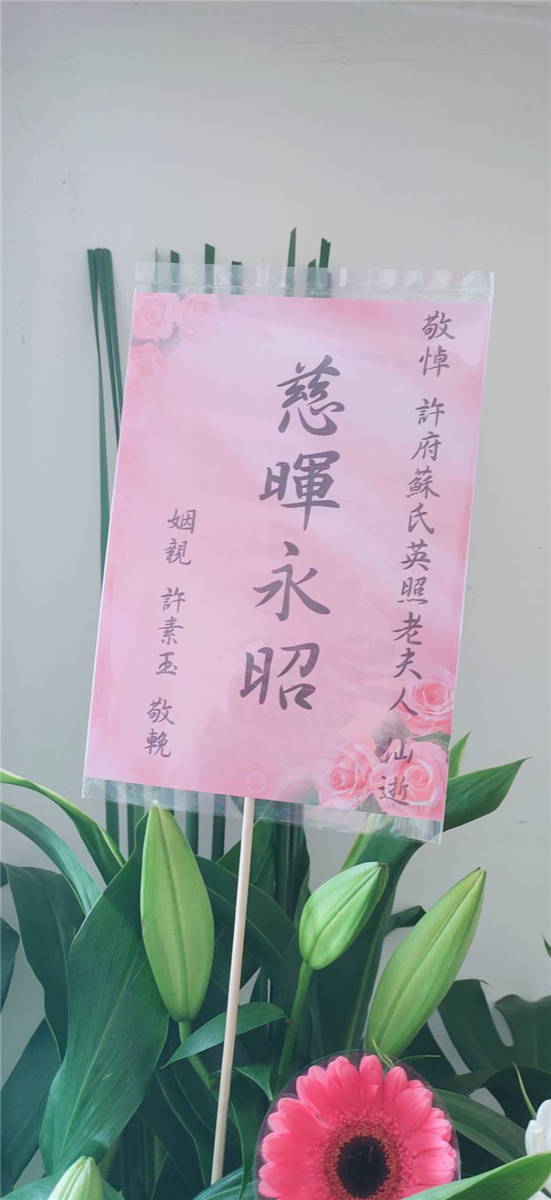 敬悼 許府蘇氏英照老夫人 仙逝
慈暉永昭
姻親 許素玉 敬輓